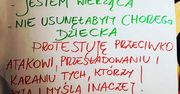 - JESTEM WIERZĄCA
- NIE USUNĘŁABYM CHOREGO
DZIECKA
PROTESTUJĘ PRZECIWKO
ATAKOWI, PRZEŚLADOWANIU I
KARANIU TYCH, KTÓRZY
MYŚLĄ INACZEJ!